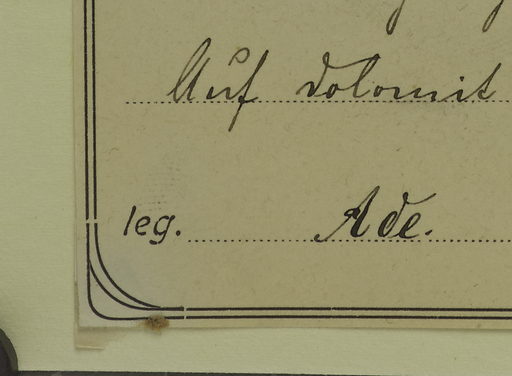 Auf Dolomit
leg. Ade.